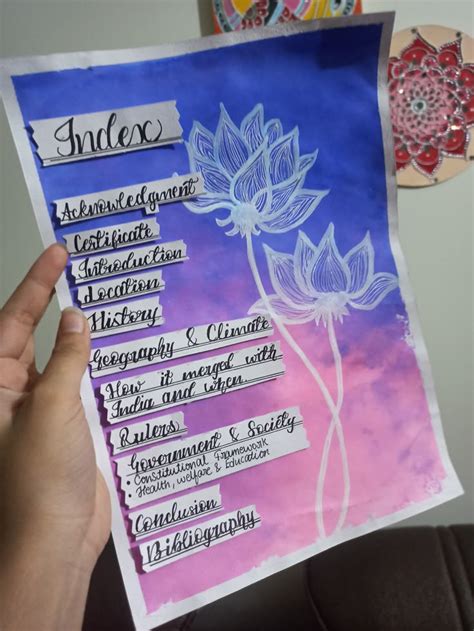 Index
Acknowledgment
Certificate
Introduction
Location
History
Geography & Climate
How it merged with
India and when.
Rulers
Government & Society
• Constitutional Framework
• Health, welfare & Education
Conclusion
Bibliography